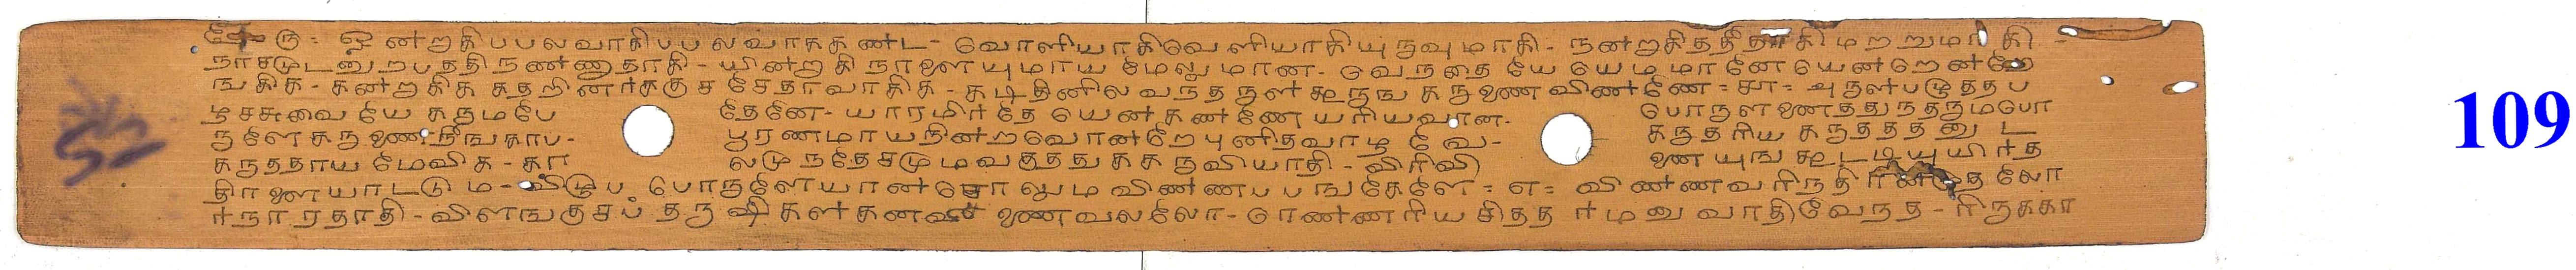 ரு: ஒன்றகிபபலவாகிபபலவாகக ண்ட- வோளியாகிவெளியாகியுநவு மாகி- நன்றகிததீதாகி மறறுமாகி -
நாசமுடனுறபததி நண்ணுதாகி- யின்றகி நாளையுமாய மேலுமான- வெநதை யே யெமமானே யென்றென்றே
ஙகிக- கன்றகிக கதறினர்ககுச சேதாவாகிக - கடிதினில வநத நுள்கூநங கருணை விண்ணே = சா = அருள்படுததப
ழசசுவை யே கநமபே தேனே- யாரமிர்தே யென்கண்ணே யரியவான- போருளணைத்துநதருமபொ
ருளே கருணை நீஙகாப- பூரணமாயநின்றவொன்றே புனிதவாழ வே- கருதரிய கருததத னு ட
கருததாய மேவிக - கா லமு நதேசமு ம வகுதது க கருவியாதி - விரிவி னையுங கூடடியுயிர்த
திரளையாடடு ம - விழுப போருளேயான சோலுமவிண்ணபபஙகேளே = எ = விண்ணவரிநதிரன்முதலோ
ர்நாரதாதி- விளஙகுசப் தருஷிகள்கனவீணைவலலோ- ரெண்ணரிய சிதத ர்மனு வாதிவேநத - ரிருககா
109